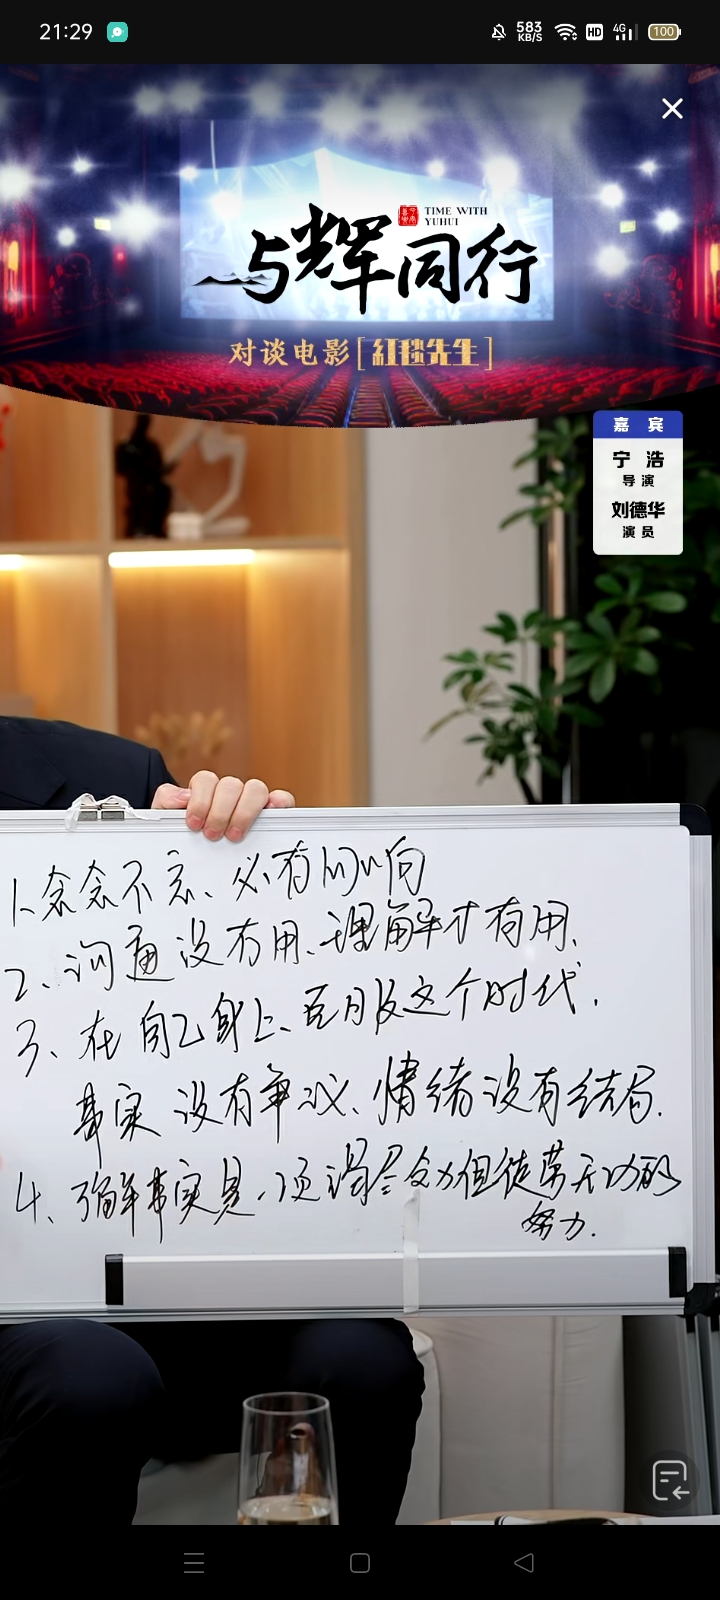 21:29
583
KB/S
HD
4G
100
与辉同行
TIME WITH
YUHUI
对谈电影[紅毯先生]
嘉 宾
宁 浩
导 演
刘德华
演 员
1、念念不忘、必有回响
2、沟通没有用、理解才有用、
3、在自己身上、克服这个时代.
事实没有争议、情绪没有结局.
4、理解事实是一项竭尽全力但徒劳无功的
努力.